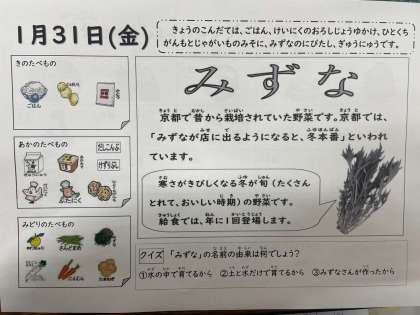 1月31日(金)
きょうのこんだては、ごはん、けいにくのおろしじょうゆかけ、ひとくち
がんもとじゃがいものみそに、みずなのにびたし、ぎゅうにゅうです。
きのたべもの
ごはん
あかのたべもの
ぎゅうにゅう
だしこんぶ
けずりぶし
ぶたにく
みどりのたべもの
にんじん
みずな
京都で昔から栽培されていた野菜です。京都では、
「みずなが店に出るようになると、冬本番」といわれ
ています。
寒さがきびしくなる冬が旬(たくさん
とれて、おいしい時期)の野菜です。
給食では、年に1回登場します。
クイズ 「みずな」の名前の由来は何でしょう?
①水の中で育てるから ②土と水だけで育てるから ③みずなさんが作ったから